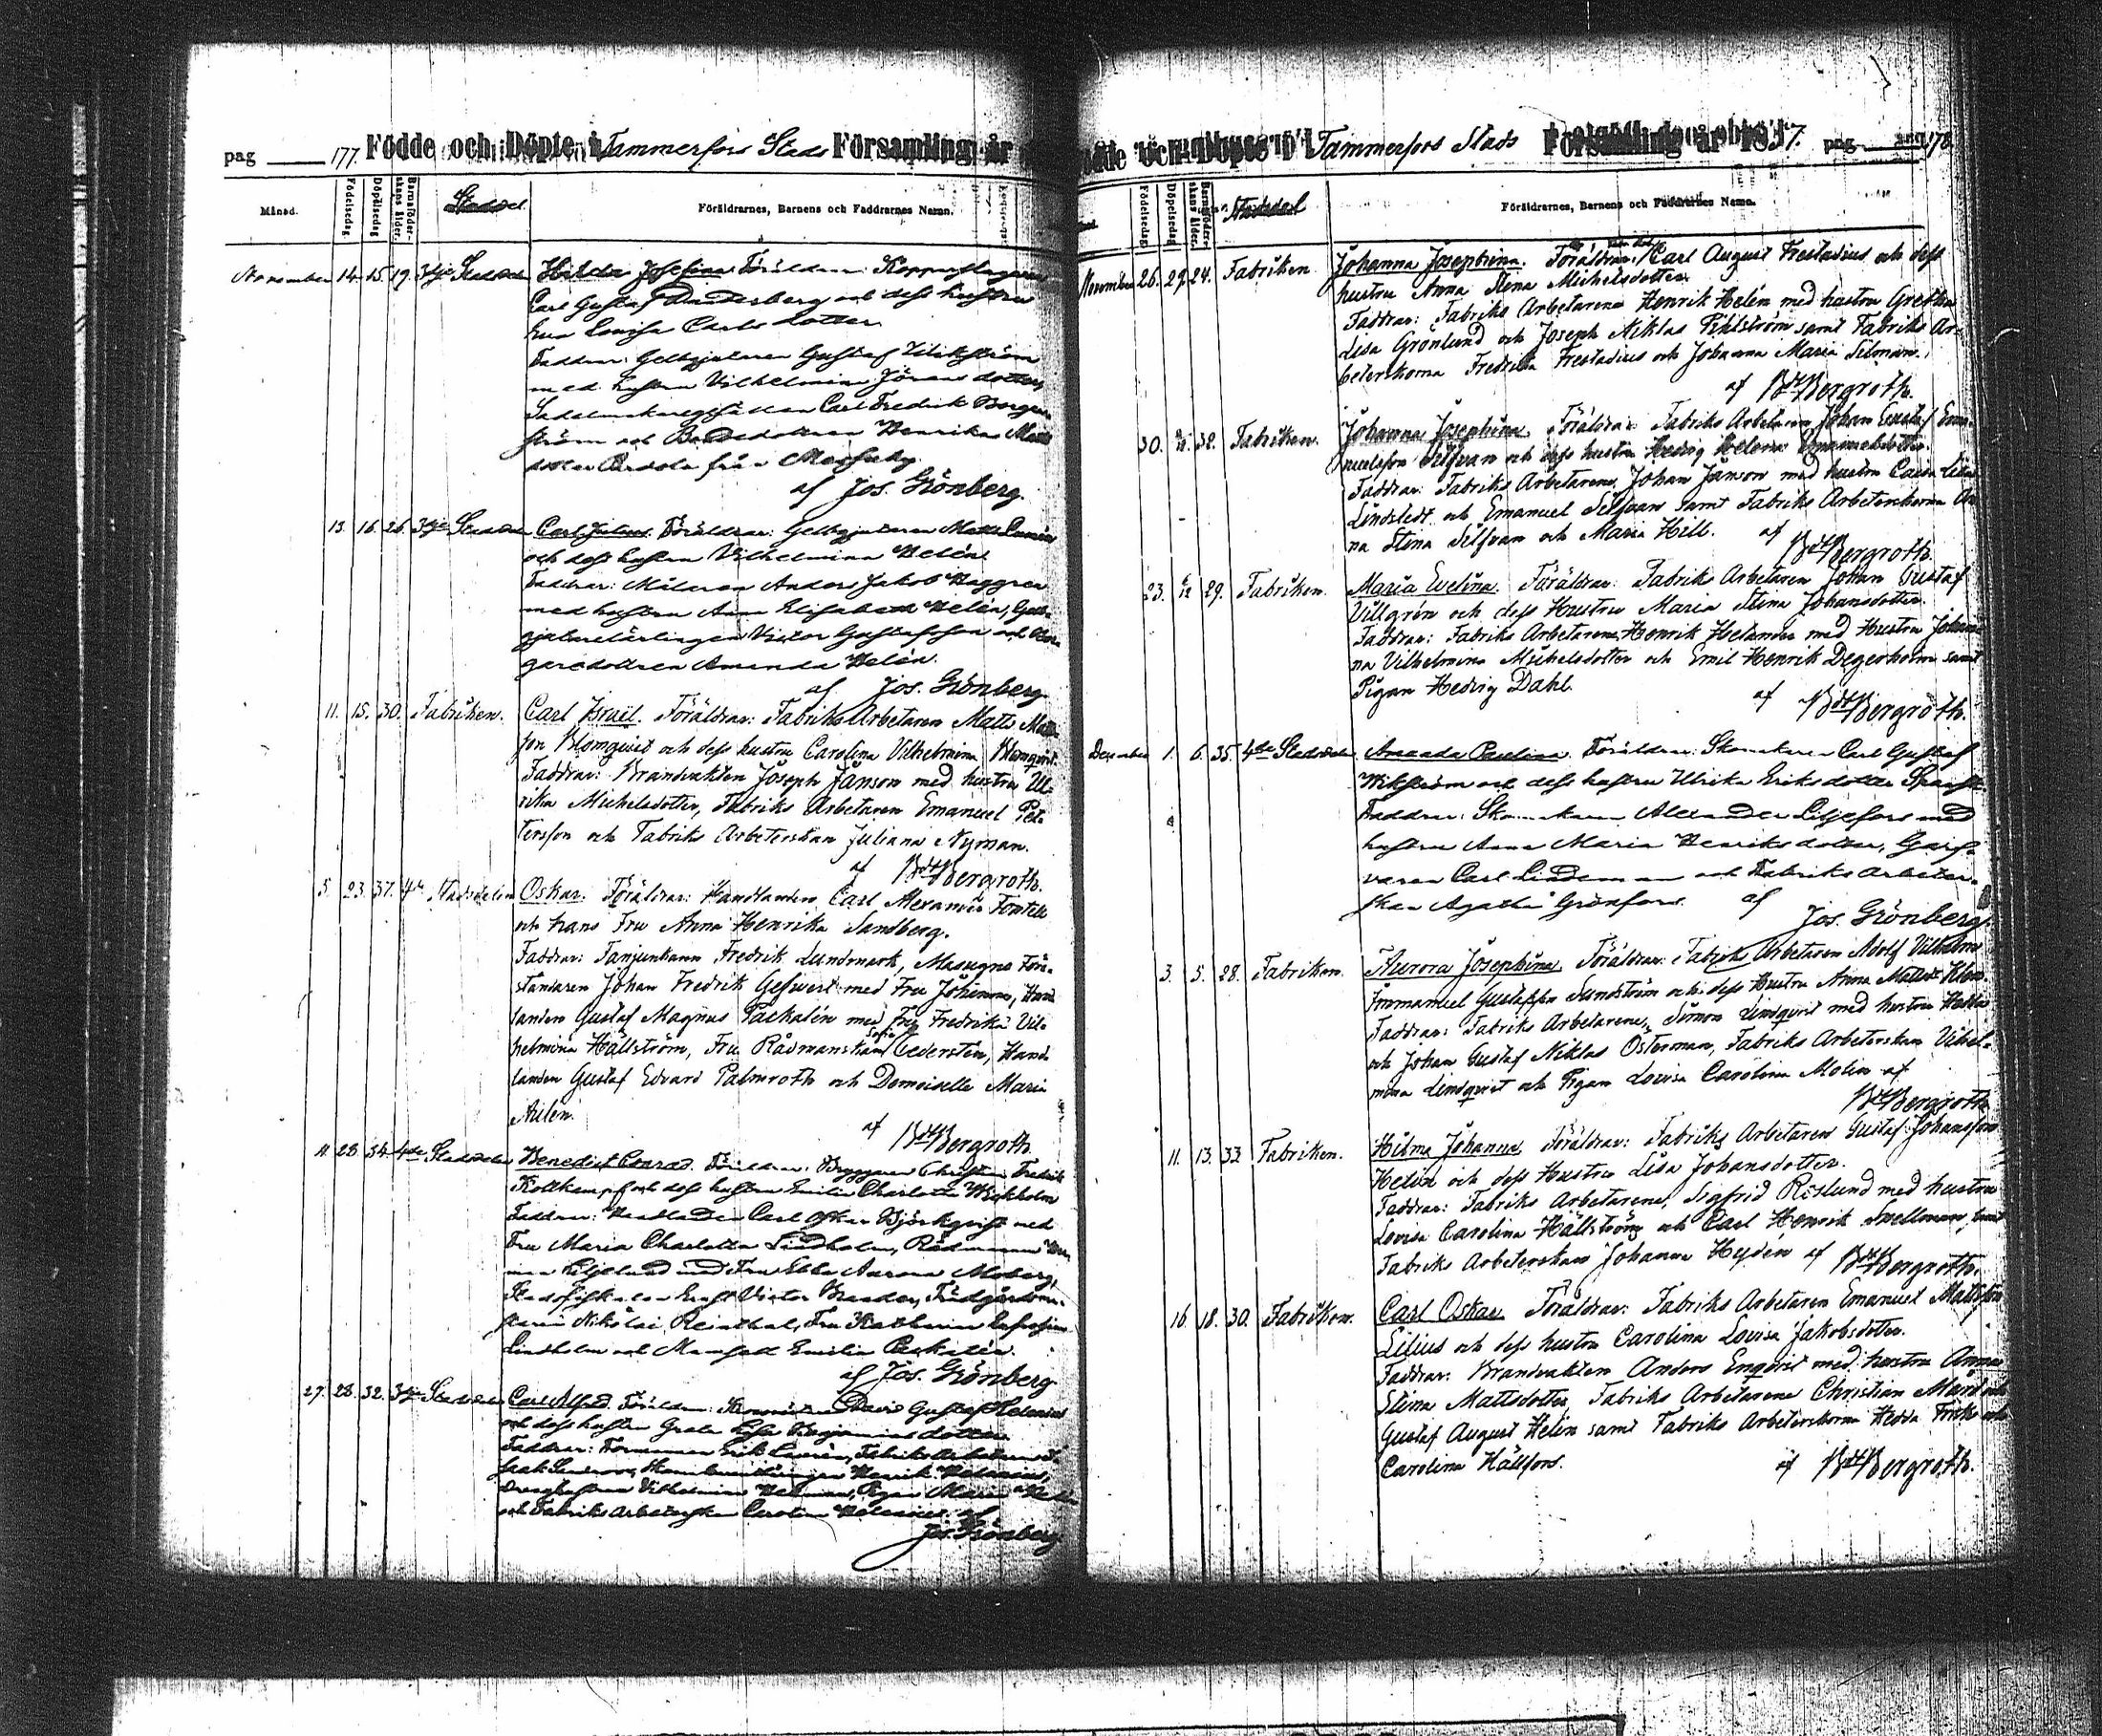 pag 177. Födde och Döpte i Tammerfors Stads Församling år
Månad. Födelsedag Döpelsedag Barnaföderskans ålder. Stadsdel Föräldrarnes, Barnens och Faddrarnes Namn.
November 14. 15. 19. 3dje Stadsdelen Hilda Josefina Föräldrar: Kopparslagaren
Carl Gustaf och dess hustru
Lovisa Carlsdotter
Faddrar: Gelbgjutaren Gustaf
med hustru Vilhelmina Jöransdotter,
Sadelmakaregesällen Carl Fredrik
ström och Bondedottren Henrika Matts
dotter från Messuby
af Jos. Grönberg.
13. 16. 26. 3dje Stadsdelen Carl Julius. Föräldrar: Gelbgjutaren Matts
och dess hustru Vilhelmina Helén
Faddrar: Målaren Anders Jakob Haggren
med hustru Anna Elisabeth Helén, Gelb-
gjutarelärlingen Victor Gustafsson och Bor-
garedottren Amanda Helén.
af Jos. Grönberg
11. 15. 30. Fabriken. Carl Israil. Föräldrar: Fabriks Arbetaren Matts Matts-
son Blomqvist och dess hustru Carolina Vilhelmina Blomqvist.
Faddrar: Brandvakten Joseph Janson med hustru Ul-
rika Michelsdotter, Fabriks Arbetaren Emanuel Pet-
tersson och Fabriks Arbeterskan Juliana Nyman.
af Bergroth.
5. 23. 37. 4de Stadsdelen Oskar. Föräldrar: Handlanden Carl Alexander Fontell
och hans Fru Anna Henrika Sandberg.
Faddrar: Fanjunkaren Fredrik Lundmark, Masugns Före-
ståndaren Johan Fredrik Gestvert med Fru Johanna, Hand-
landen Gustaf Magnus Packalén med Fru Fredrika Vil-
helmina Hällström, Fru Rådmanskan Sofia Cedersten, Hand-
landen Gustaf Edvard Palmroth och Demoiselle Maria
Aulén.
af Bergroth.
11. 28. 34. 4de Stadsdelen Benedict Conrad. Föräldrar: Bryggaren Christian Fredrik
och dess hustru Emilia Charlotta
Faddrar: Handlanden Carl Oskar Björkqvist med
Fru Maria Charlotta Lindholm, Rådmannen
Liljelund med Fru Ebba Aurora Moberg,
Stadsfiskalen Ernst Victor Brander, Trädgårdsmä-
staren Nikolai Reinthal, Fru Katharina
Lindholm och Mamsell Emilia Packalén.
af Jos. Grönberg
27. 28. 32. 3dje Stadsdelen Carl Alfred. Föräldrar: David Gustaf Helenius
och dess hustru Greta Lisa Benjaminsdotter
Faddrar: Formannen Erik Fabriks Arbetaren I-
sak Henrik Helenius,
Vilhelmina Pigan Maria
och Fabriks Arbeterskan Carolina Helenius af
Jos. Grönberg
Födde och Döpte i Tammerfors Stads Församling år 1857. pag 178
Födelsedag Döpelsedag Barnaföderskans ålder. Stadsdel Föräldrarnes, Barnens och Faddrarnes Namn.
November 26. 29. 24. Fabriken Johanna Josephina. Föräldrar: Carl August Frestadius och dess
hustru Anna Stena Michelsdotter.
Faddrar: Fabriks Arbetarena Henrik Helén med hustru Gretha
Lisa Grönlund och Joseph Niklas Pihlström samt Fabriks Ar-
beterskorna Fredrika Frestadius och Johanna Maria Silman.
af Bergroth.
30. 32. Fabriken. Johanna Josephina. Föräldrar: Fabriks Arbetaren Johan Gustaf Ema-
nuelsson Silfvan och dess hustru Hedvig Helena Emanuelsdotter.
Faddrar: Fabriks Arbetarene Johan Janson med hustru Caisa Lisa
Lindstedt och Emanuel Silfvan samt Fabriks Arbeterskorna An-
na Stina Silfvan och Maria Hill. af
Bergroth.
23. 29. Fabriken. Maria Evelina. Föräldrar: Fabriks Arbetaren Johan Gustaf
Villgrén och dess Hustru Maria Stina Johansdotter.
Faddrar: Fabriks Arbetarene Henrik Helander med Hustru Johan-
na Vilhelmina Michelsdotter och Emil Henrik Degerholm samt
Pigan Hedvig Dahl.
af Bergroth.
December 1. 6. 35. 4de Stadsdelen Amanda Paulina. Föräldrar: Skomakaren Carl Gustaf
Wikström och dess hustru Ulrika Eriksdotter
Faddrar: Skomakaren Alexander Liljefors med
hustru Anna Maria Henriksdotter, Garf-
varen Carl Lindeman och Fabriks Arbeter-
skan Agatha Grönfors. af
Jos. Grönberg.
3. 5. 28. Fabriken. Aurora Josephina. Föräldrar: Fabriks Arbetaren Adolf Vilhelm
Immanuel Gustafsson Sundström och dess Hustru Anna
Faddrar: Fabriks Arbetarene, Simon Lindqvist med hustru Hedda
och Johan Gustaf Niklas Österman, Fabriks Arbeterskan Vilhel-
mina Lindqvist och Pigan Lovisa Carolina Molin af
Bergroth
11. 13. 33. Fabriken. Hilma Johanna Föräldrar: Fabriks Arbetaren Gustaf Johansson
Helin och dess Hustru Lisa Johansdotter.
Faddrar: Fabriks Arbetarene, Sigfrid Röslund med hustru
Lovisa Carolina Hällström och Carl Henrik Snellman, samt
Fabriks Arbeterskan Johanna Hydén af Bergroth.
16. 18. 30. Fabriken. Carl Oskar Föräldrar: Fabriks Arbetaren Emanuel Mattsson
Lilius och dess hustru Carolina Lovisa Jakobsdotter.
Faddrar: Brandvakten Anders Enqvist med hustru Anna
Stina Mattsdotter, Fabriks Arbetarena Christian Mård och
Gustaf August Helin samt Fabriks Arbeterskorna Hedda Frisk och
Carolina Hällfors. af Bergroth.